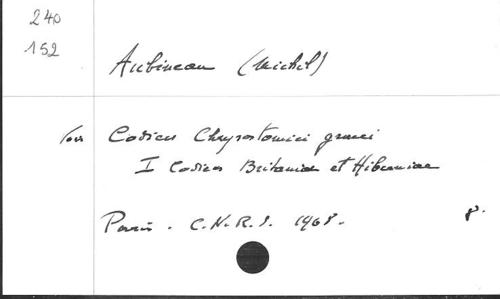 240
152
Aubineau (Michel)
Codices Chrysostomici graeci
I Codices Britanniae et Hiberniae
Paris. C.N.R.S. 1968. 8°